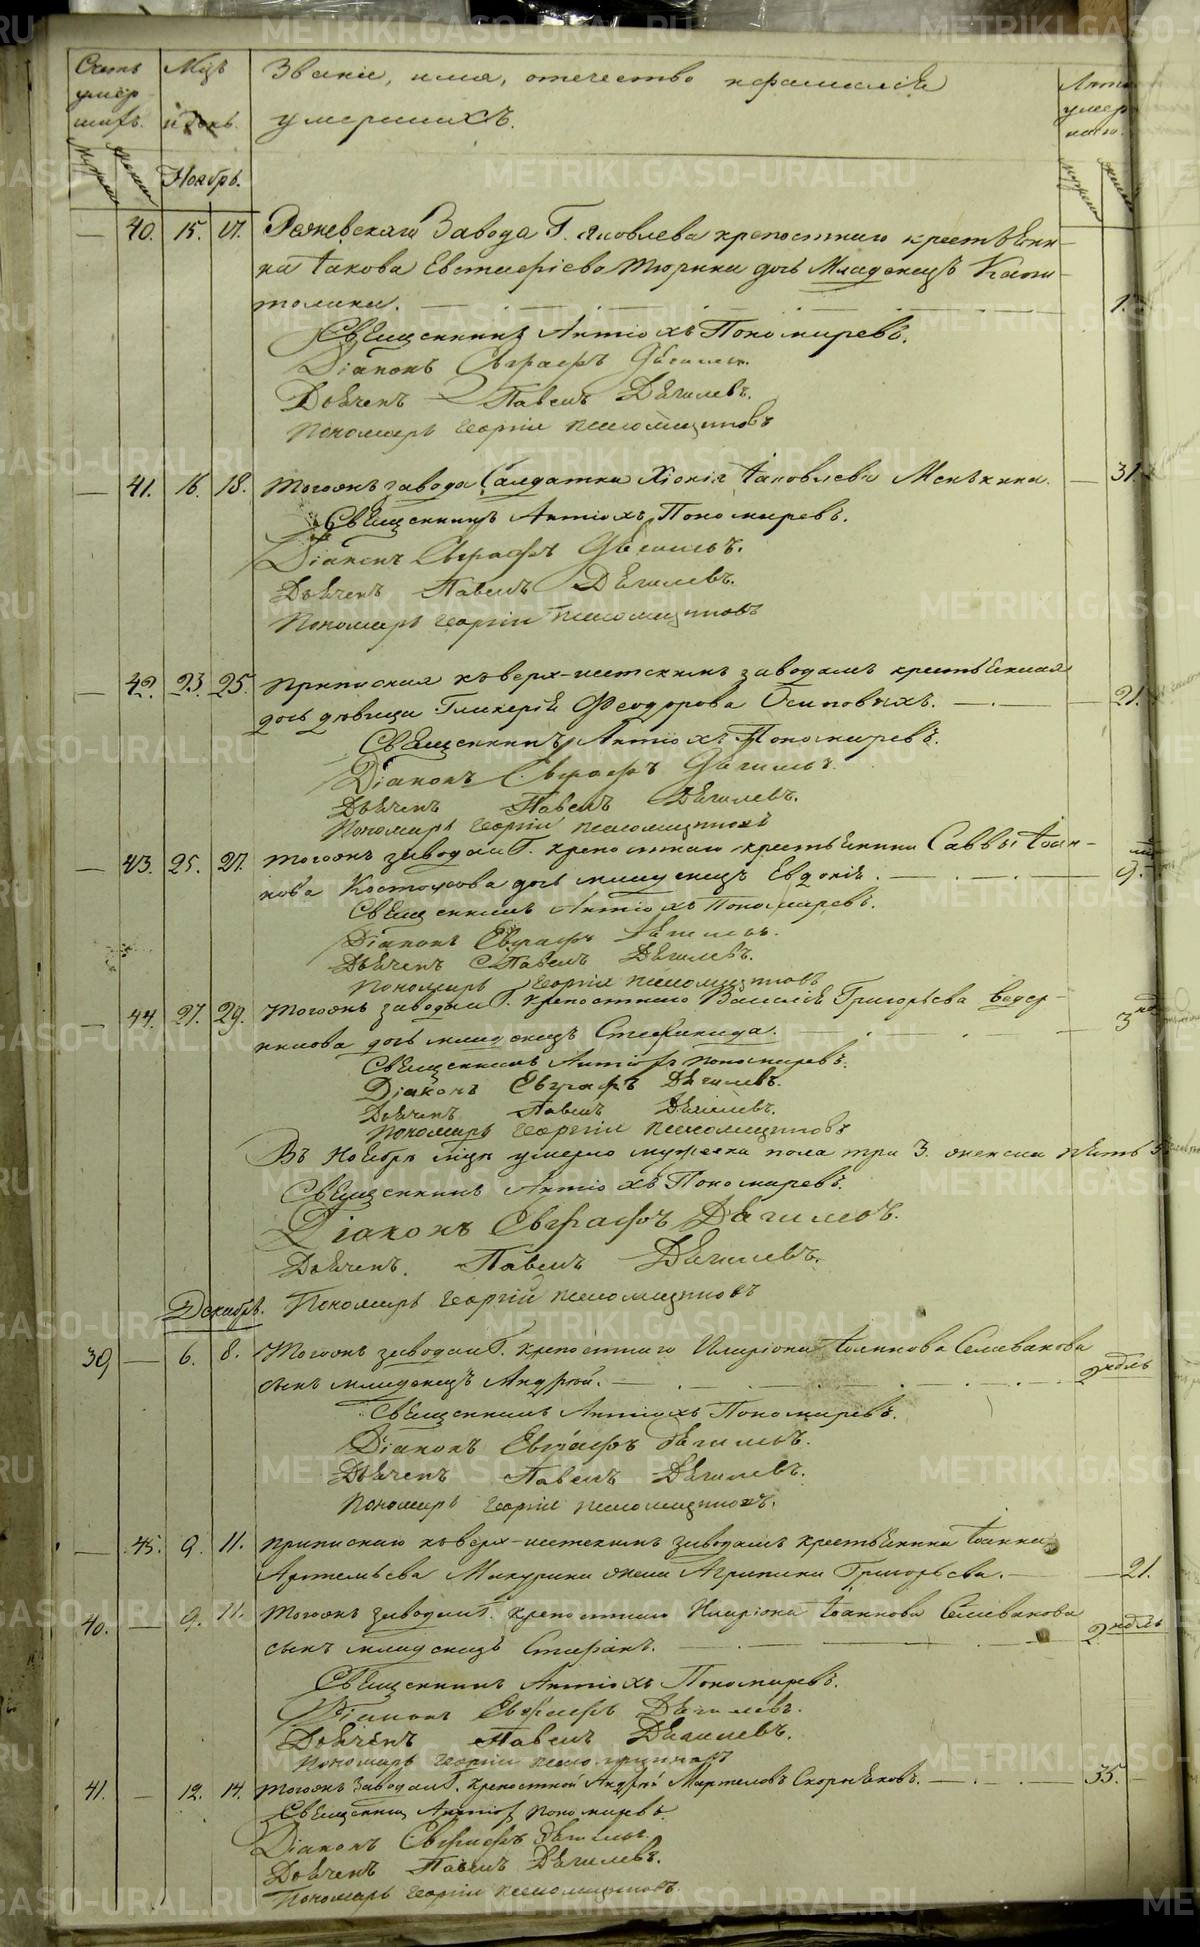 Счетъ умер-шихъ.
Мцъ и день.
Званіе, имя, отечество и фамилія умершихъ.
Лета умер-шаго.
Ноябрь.
— 40. 15. 17. Режевскаго Завода Г. Яковлева крепостнаго крестьяни-
на Іакова Евстафіева Тюрина дочь Младенецъ Капи-
толина. 1.
Священникъ Антіохъ Пономаревъ.
Діаконъ Евграфъ Дягилевъ.
Дьячекъ Павелъ Дягилевъ.
Пономарь Георгій
— 41. 16. 18. Тогожъ завода Салдатка Хіонія Іаковлева Менькина. — 31.
Священникъ Антіохъ Пономаревъ.
Діаконъ Евграфъ Дягилевъ.
Дьячекъ Павелъ Дягилевъ.
Пономарь Георгій
— 42. 23. 25. Приписная къ верх-исетскимъ заводамъ крестьянская
дочь девица Гликерія Феодорова Осиповыхъ. 21.
Священникъ Антіохъ Пономаревъ.
Діаконъ Евграфъ Дягилевъ.
Дьячекъ Павелъ Дягилевъ.
Пономарь Георгій
— 43. 25. 27. Тогожъ завода и Г. крепостнаго крестьянина Саввы Іоан-
нова Костоусова дочь младенецъ Евдокія. 9.
Священникъ Антіохъ Пономаревъ.
Діаконъ Евграфъ Дягилевъ.
Дьячекъ Павелъ Дягилевъ.
Пономарь Георгій
— 44. 27. 29. Тогожъ завода и Г. крепостнаго Василія Григорьева Ведер-
никова дочь младенецъ Стефанида. 3 нд
Священникъ Антіохъ Пономаревъ.
Діаконъ Евграфъ Дягилевъ.
Дьячекъ Павелъ Дягилевъ.
Пономарь Георгій
Въ Ноябре мцѣ умерло мужеска пола три 3. женска пять 5
Священникъ Антіохъ Пономаревъ.
Діаконъ Евграфъ Дягилевъ.
Дьячекъ. Павелъ Дягилевъ.
Декабрь. Пономарь Георгій
39 — 6. 8. Тогожъ завода и Г. крепостнаго Иларіона Іоаннова Селиванова
сынъ младенецъ Андрей. 2 ндль
Священникъ Антіохъ Пономаревъ.
Діаконъ Евграфъ Дягилевъ.
Дьячекъ Павелъ Дягилевъ.
Пономарь Георгій
— 45. 9. 11. Приписнаго къ верх-исетскимъ заводамъ крестьянина Іоанна
Артемьева Макурина жена Агрипина Григорьева. — 21.
40. — 9. 11. Тогожъ завода и Г. крепостнаго Иларіона Іоаннова Селиванова
сынъ младенецъ Стефанъ. 2 ндль
Священникъ Антіохъ Пономаревъ.
Діаконъ Евграфъ Дягилевъ.
Дьячекъ Павелъ Дягилевъ.
Пономарь Георгій
41. — 12. 14. Тогожъ Завода и Г. крепостной Андрей Мартемовъ Скорняковъ. 35. —
Священникъ Антіохъ Пономаревъ.
Діаконъ Евграфъ Дягилевъ.
Дьячекъ Павелъ Дягилевъ.
Пономарь Георгій
METRIKI.GASO-URAL.RU